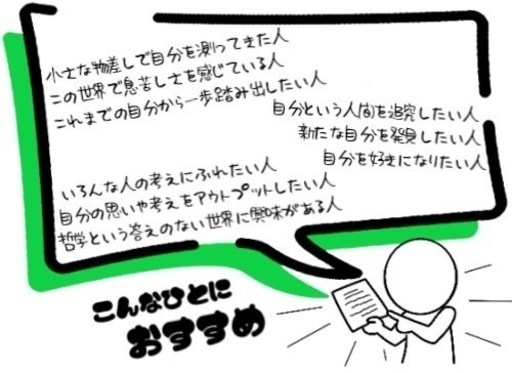 小さな物差しで自分を測ってきた人
この世界で息苦しさを感じている人
これまでの自分から一歩踏み出したい人
自分という人間を追究したい人
新たな自分を発見したい人
自分を好きになりたい人
いろんな人の考えにふれたい人
自分の思いや考えをアウトプットしたい人
哲学という答えのない世界に興味がある人
こんなひとに
おすすめ